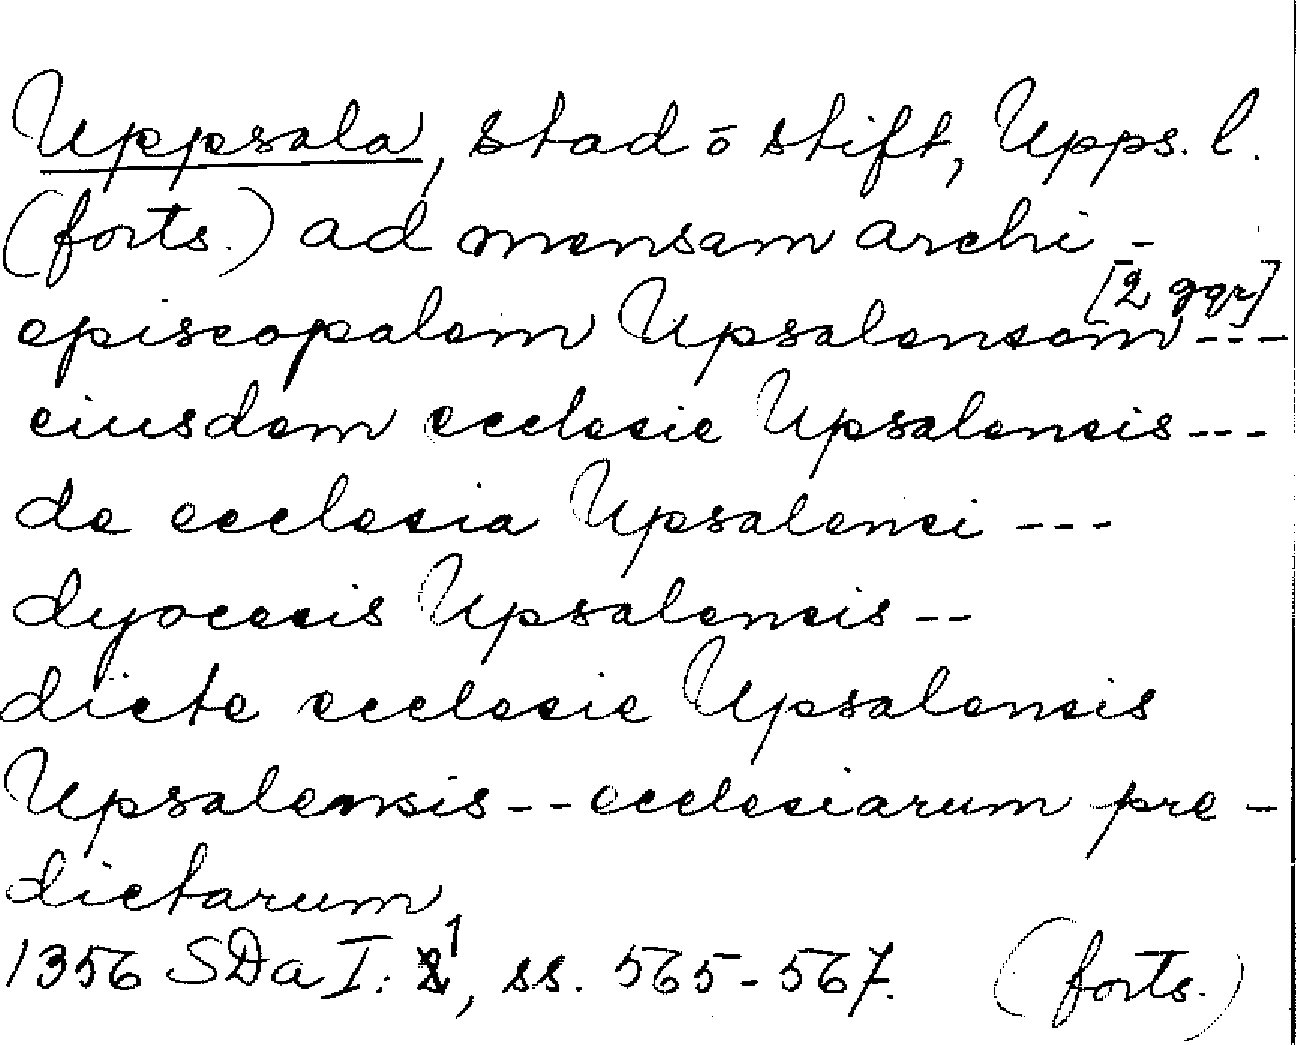 Uppsala, stad ō stift, Upps. l.
(forts.) ad mensam archi-
[2 ggr]
episcopalem Upsalensem ---
eiusdem ecclesie Upsalensis ---
de ecclesia Upsalensi ---
dyocesis Upsalensis --
dicte ecclesie Upsalensis
Upsalensis -- ecclesiarum pre-
dictarum
1356 SDa I: 1, ss. 565-567. (forts.)